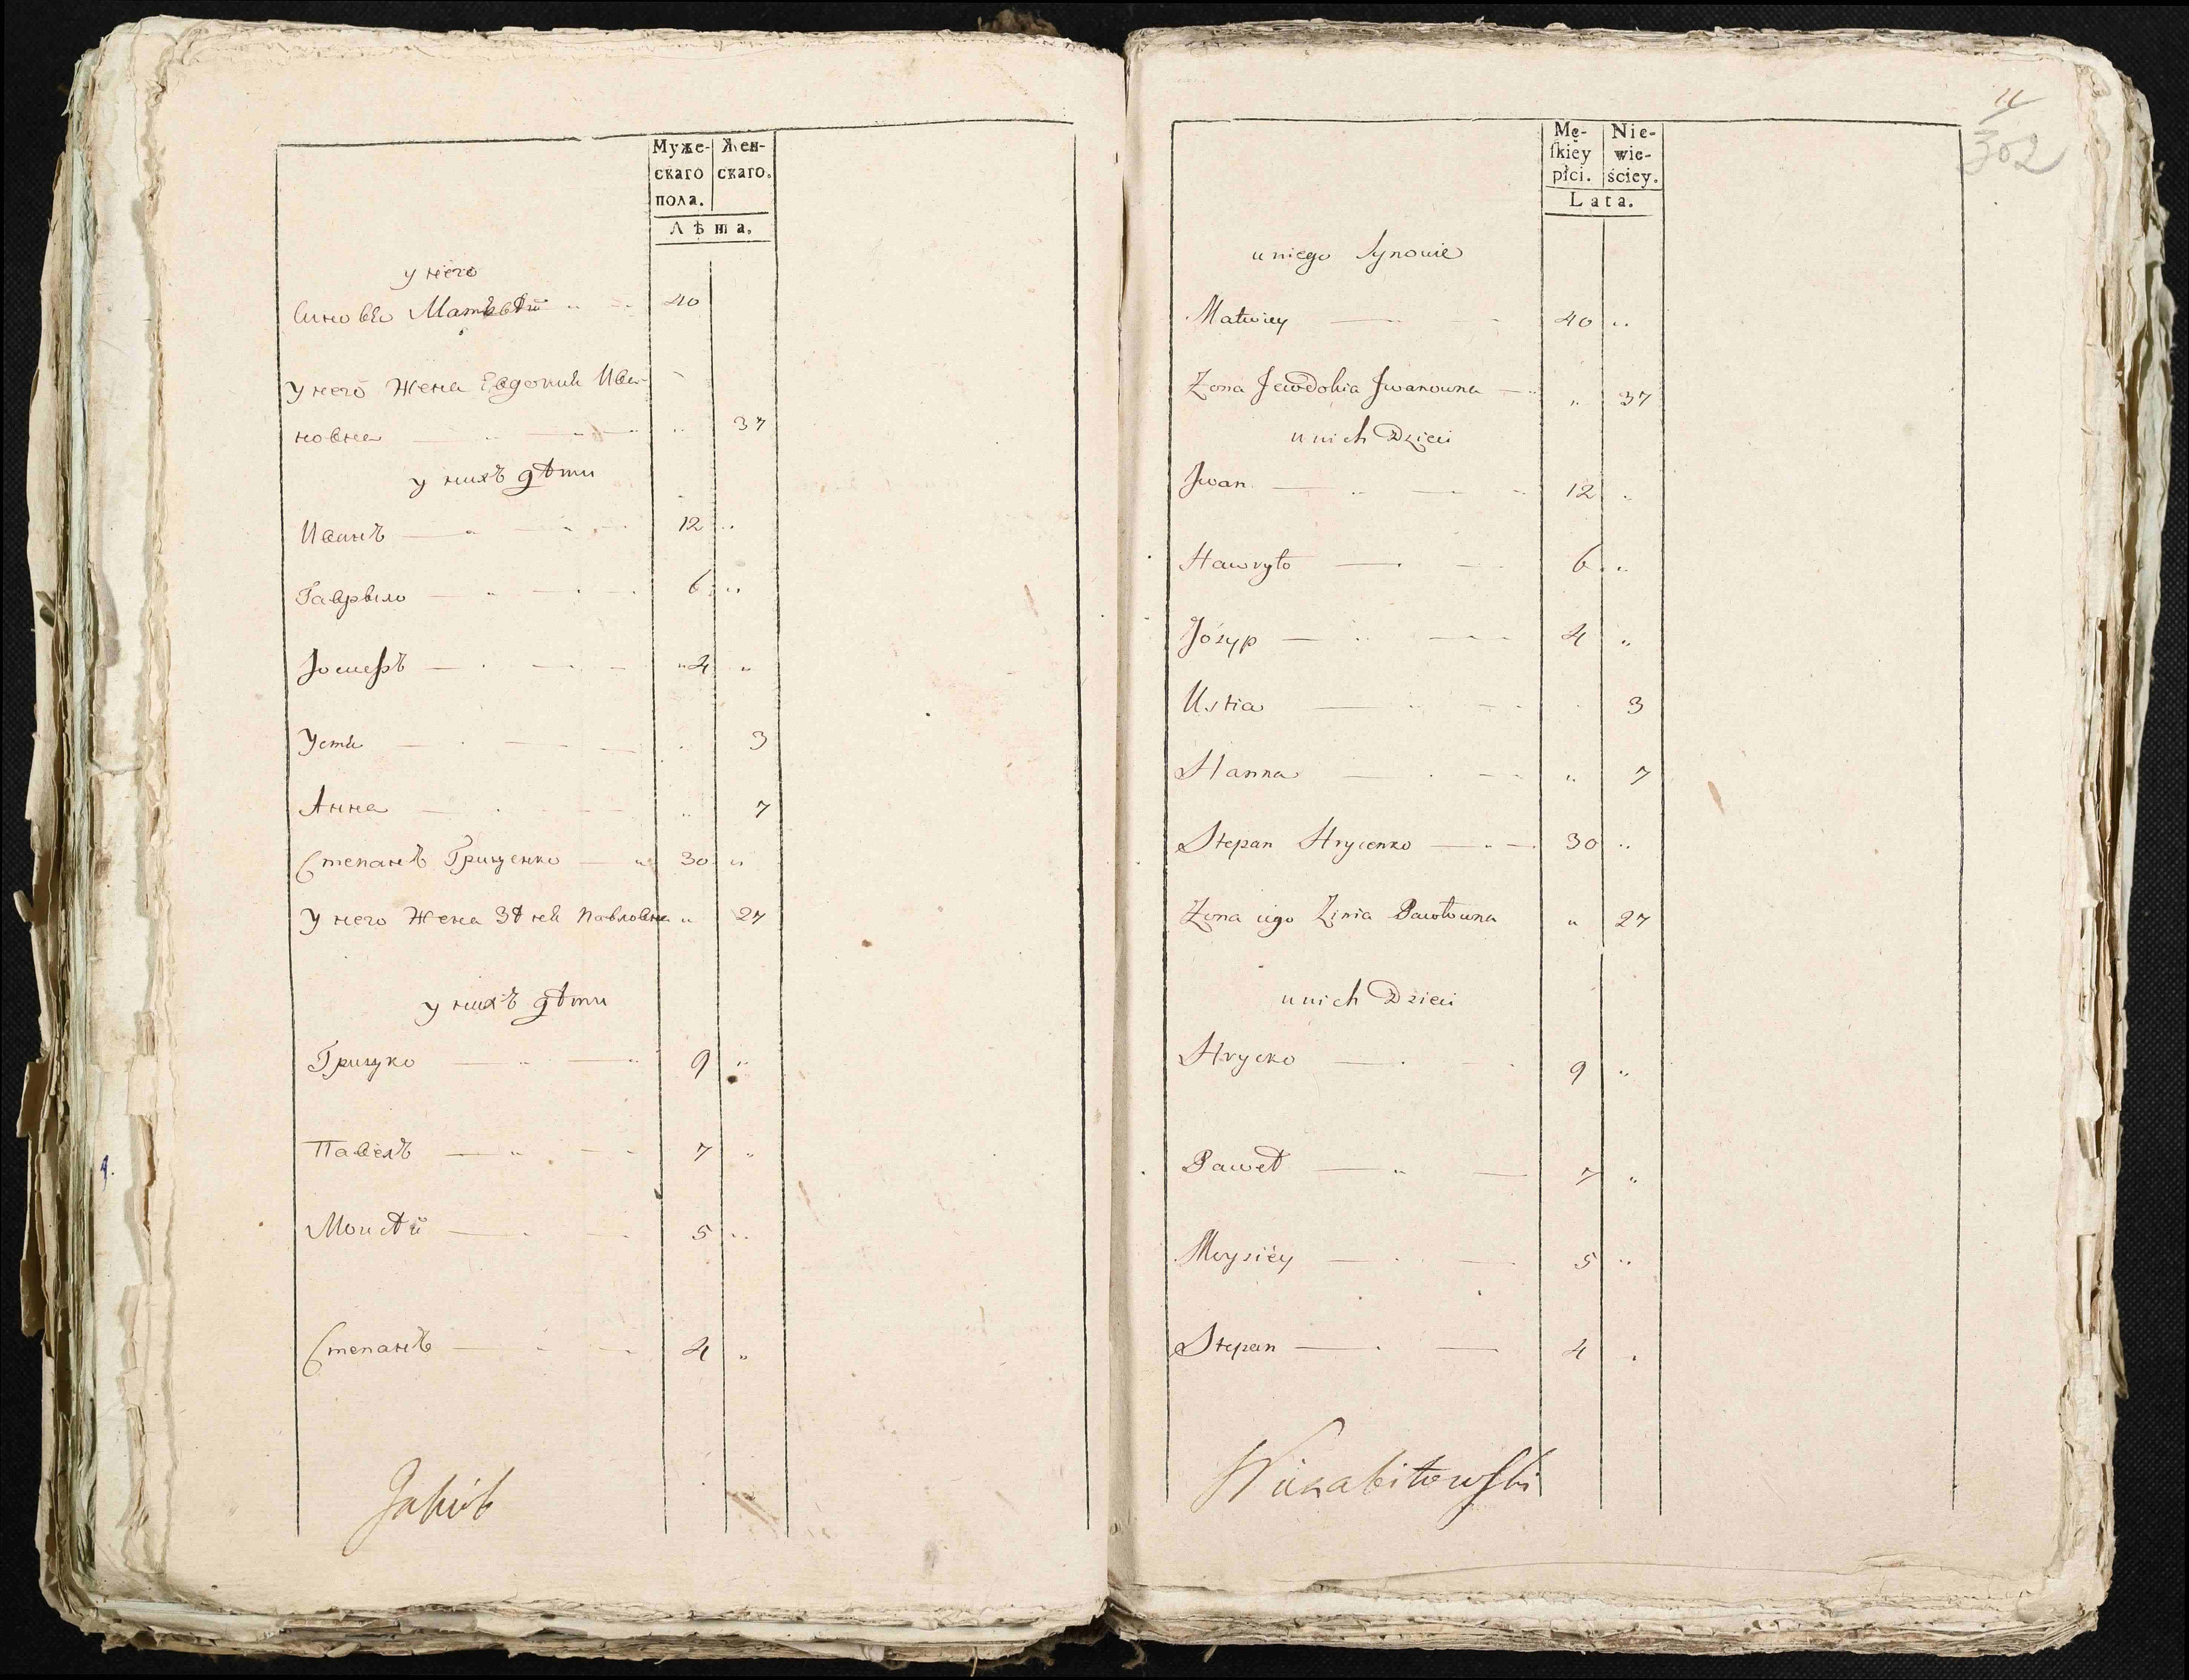 Муже- Жен-
скаго скаго.
пола.
Лѣта.
у него
Синове Матвѣй 40
у него Жена Евдокия Ива-
новна 37
у нихъ дѣти
Иванъ 12
Гаврыло 6
Іосифъ 4
Устя 3
Анна 7
Степанъ Гриценко 30
у него Жена Зѣня Павловна 27
у нихъ дѣти
Грицко 9
Павелъ 7
Моисѣй 5
Степанъ 4
Jakób
11
302
Mę- Nie-
ſkiey wie-
płci. ściey.
Lata.
u niego Synowie
Matwiey 40
Zona Jewdokia Jwanowna 37
u nich Dzieci
Jwan 12
Hawryło 6
Józyp 4
Ustia 3
Hanna 7
Stepan Hrycenko 30
Zona iego Zinia Pawłowna 27
u nich Dzieci
Hrycko 9
Paweł 7
Moysiéy 5
Stepan 4